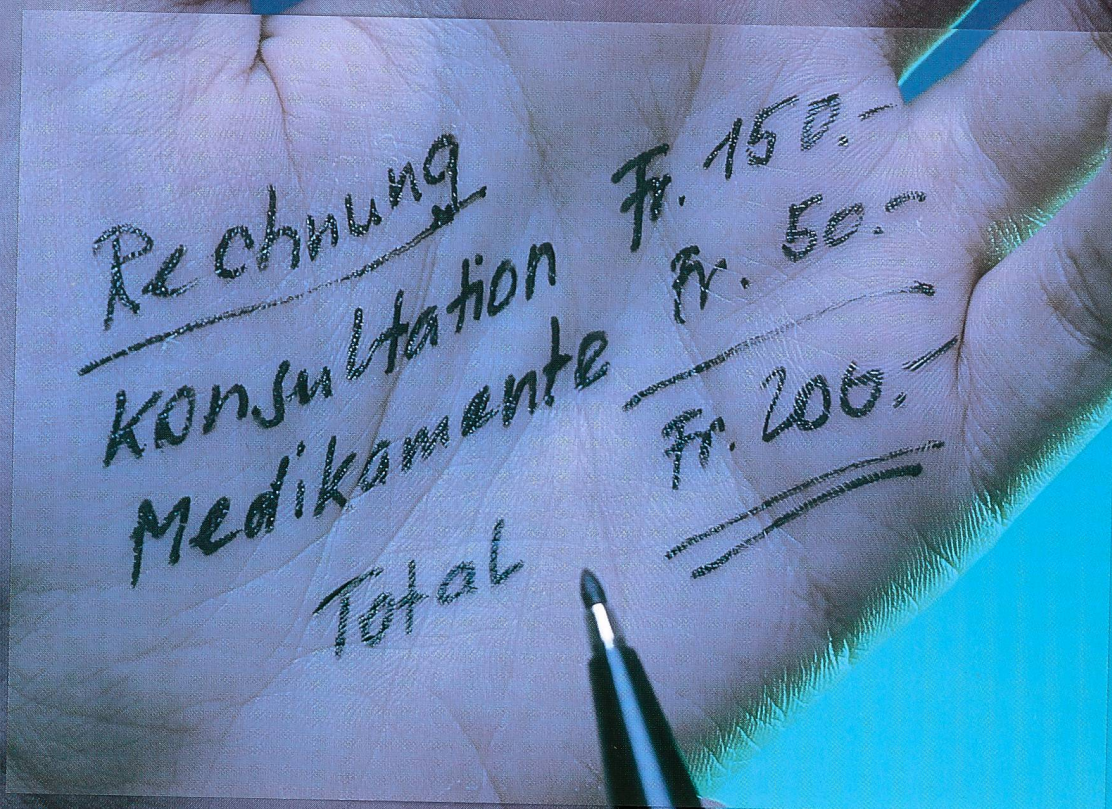 Rechnung
Konsultation Fr. 150.-
Medikamente Fr. 50.-
Total Fr. 200.-